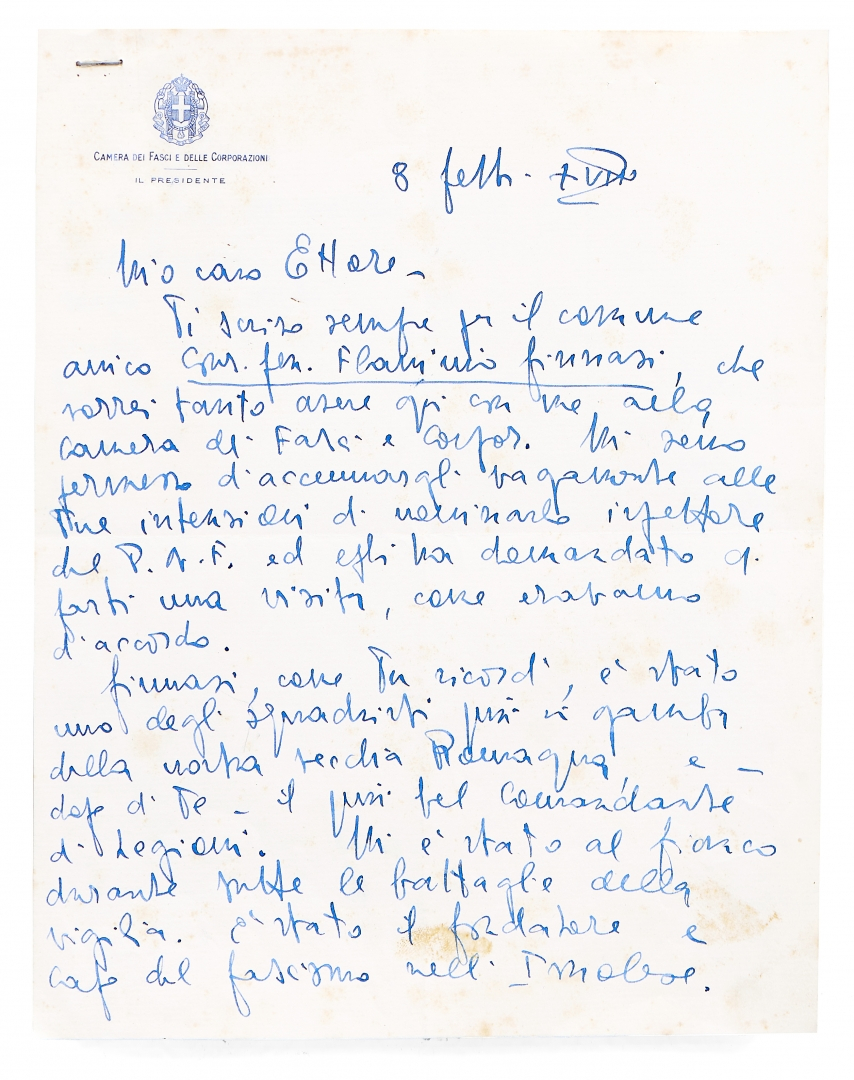 CAMERA DEI FASCI E DELLE CORPORAZIONI
IL PRESIDENTE
8 febb. XVIII°
Mio caro Ettore -
Ti scrivo sempre per il comune
amico Cons. Gen. Flaminio Ginnasi, che
vorrei tanto avere qui con me alla
Camera dei Fasci e Corpor. Mi sono
permesso d'accennargli vagamente alle
Tue intenzioni di nominarlo ispettore
del P.N.F. ed egli ha domandato di
farti una visita, come eravamo
d'accordo.
Ginnasi, come Tu ricordi, è stato
uno degli squadristi più in gamba
della nostra vecchia Romagna, e -
dopo di Te - il più bel Comandante
di Legioni. Mi è stato al fianco
durante tutte le battaglie della
vigilia. È stato il fondatore e
capo del fascismo nell'Imolese.